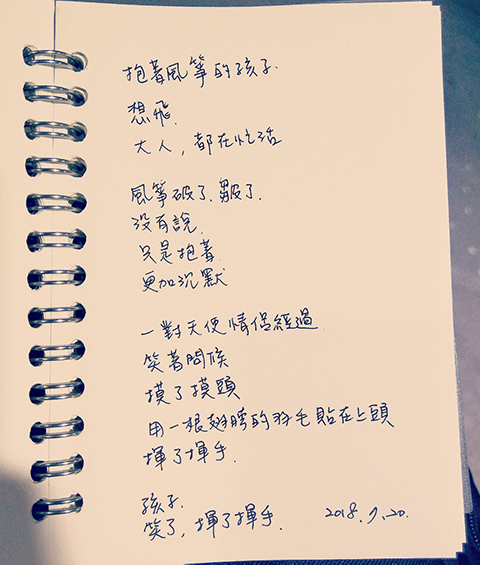 抱著風箏的孩子.
想飛.
大人，都在忙活
風箏破了.皺了.
沒有說.
只是抱著
更加沉默
一對天使情侶經過.
笑著問候
摸了摸頭
用一根翅膀的羽毛貼在上頭
揮了揮手.
孩子.
笑了，揮了揮手. 2018.7.20.